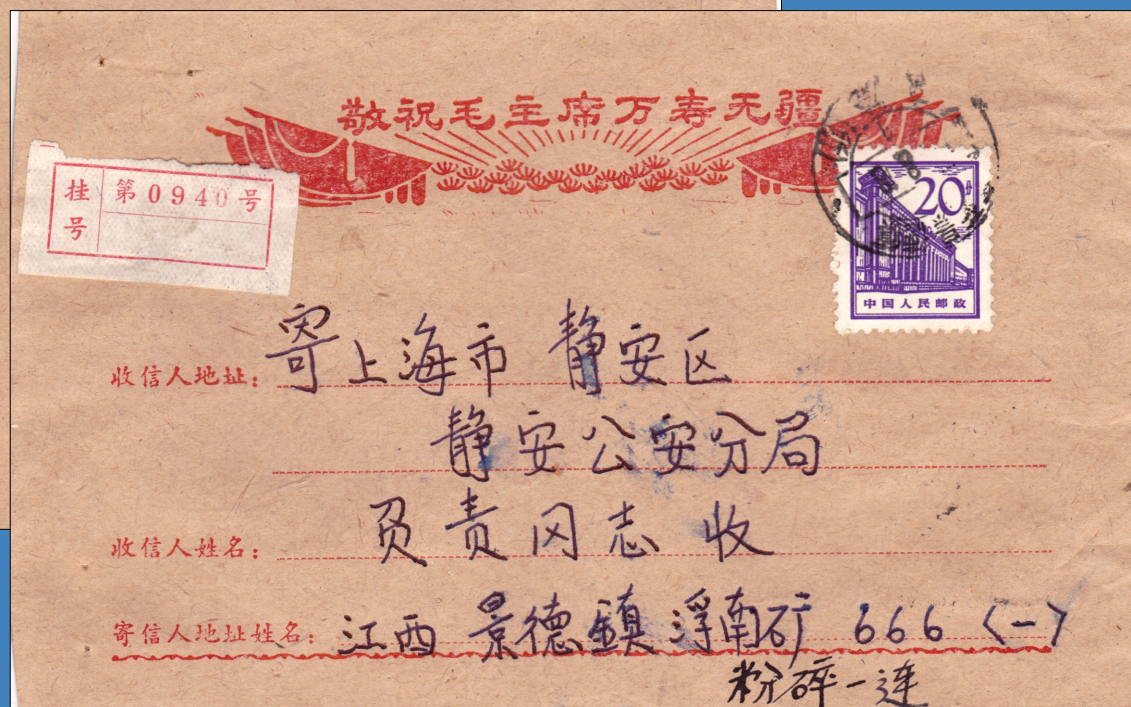 敬祝毛主席万寿无疆
挂号
第0940号
20
中国人民邮政
收信人地址：寄上海市 静安区
静安公安分局
收信人姓名：负责同志 收
寄信人地址姓名：江西 景德镇 浮南矿 666 〈一〉
粉碎一连